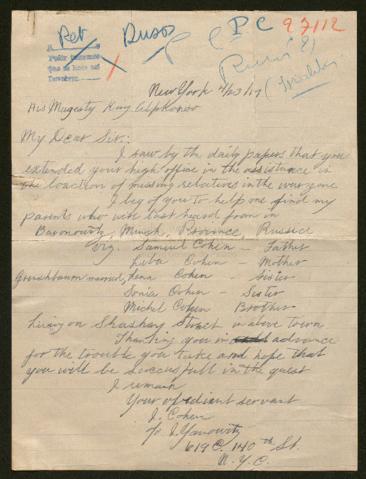 Ret Rusos P C 97112
Rusia (?)
New York 4/23/17
His Magesty King Alphonso
My Dear Sir:
I saw by the daily papers that you
extended your high office in the assistance in
the loaction of missing relatives in the war zone
I beg of you to help me find my
parents who were last heard from in
Baronowitz, Minsk, Province, Russia
viz. Samuel Cohen — Father
Liba Cohen — Mother
named, Lena Cohen — Sister
Sonia Cohen — Sister
Michel Cohen Brother
Living on Street in above town
Thanking you in advance
for the trouble you take and hope that
you will be successfull in the quest
I remain
Your obedient servant
I. Cohen
c/o I. Yanowitz
619 E. 140th St.
N.Y.C.